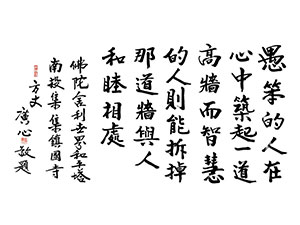 愚笨的人在
心中築起一道
高牆而智慧
的人則能拆掉
那道牆與人
和睦相處
佛陀舍利世界和平塔
南投集集鎮國寺
方丈
廣心敬題